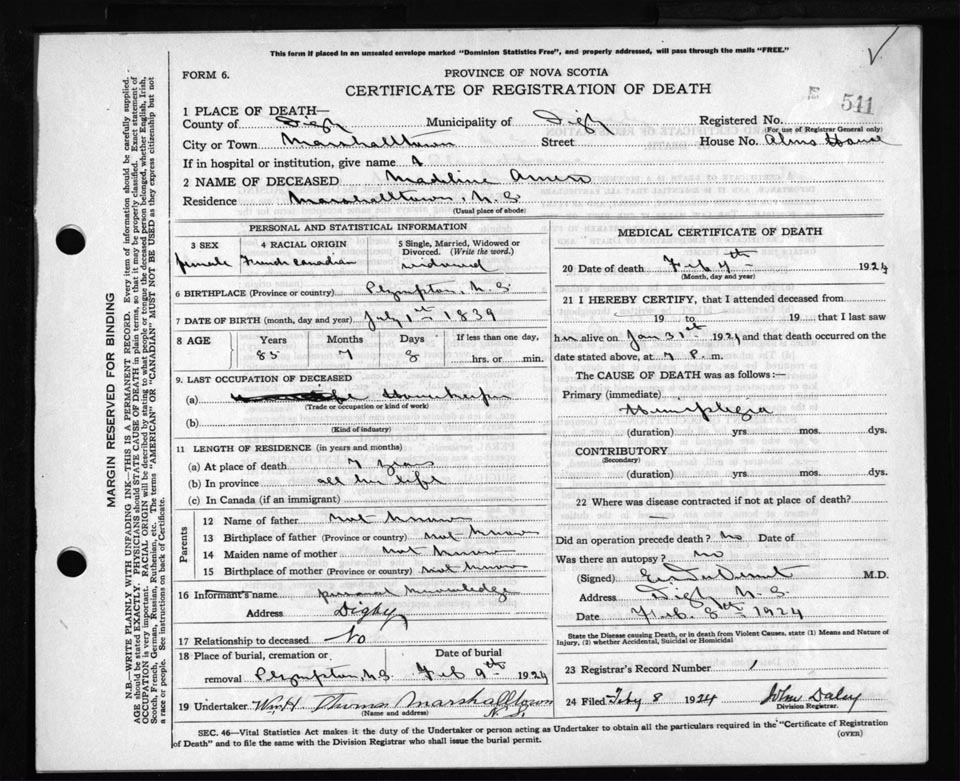 This form if placed in an unsealed envelope marked "Dominion Statistics Free", and properly addressed, will pass through the mails "FREE."
FORM 6.
PROVINCE OF NOVA SCOTIA
CERTIFICATE OF REGISTRATION OF DEATH
511
1 PLACE OF DEATH—
County of Digby Municipality of Digby Registered No.
(For use of Registrar General only)
City or Town Marshalltown Street House No. Alms House
If in hospital or institution, give name
2 NAME OF DECEASED Madeline Amero
Residence Marshalltown, N.S.
(Usual place of abode)
PERSONAL AND STATISTICAL INFORMATION
3 SEX 4 RACIAL ORIGIN 5 Single, Married, Widowed or Divorced. (Write the word.)
female French Canadian widowed
6 BIRTHPLACE (Province or country) Plympton, N.S.
7 DATE OF BIRTH (month, day and year) July 1st 1839
8 AGE Years Months Days If less than one day,
85 7 8 hrs. or min.
9. LAST OCCUPATION OF DECEASED
(a) Housekeeper
(Trade or occupation or kind of work)
(b)
(Kind of industry)
11 LENGTH OF RESIDENCE (in years and months)
(a) At place of death 7 years
(b) In province all her life
(c) In Canada (if an immigrant)
Parents
12 Name of father not known
13 Birthplace of father (Province or country) not known
14 Maiden name of mother not known
15 Birthplace of mother (Province or country) not known
16 Informant's name personal knowledge
Address Digby
17 Relationship to deceased No
18 Place of burial, cremation or removal Date of burial
Plympton, N.S. Feb 9th 1924
19 Undertaker Wm H Thomas Marshalltown N.S.
(Name and address)
MEDICAL CERTIFICATE OF DEATH
20 Date of death Feb 7th 1924
(Month, day and year)
21 I HEREBY CERTIFY, that I attended deceased from
19 to 19 that I last saw
her alive on Jan 31st 1924 and that death occurred on the
date stated above, at 7 P. m.
The CAUSE OF DEATH was as follows:—
Primary (immediate)
Hemiplegia
(duration) yrs. mos. dys.
CONTRIBUTORY
(Secondary)
(duration) yrs. mos. dys.
22 Where was disease contracted if not at place of death?
—
Did an operation precede death? No Date of
Was there an autopsy? No
(Signed) M.D.
Address Digby N.S.
Date Feb. 8th 1924
State the Disease causing Death, or in death from Violent Causes, state (1) Means and Nature of
Injury, (2) whether Accidental, Suicidal or Homicidal
23 Registrar's Record Number 1
24 Filed Feby 8 1924 John Daley
Division Registrar.
SEC. 46—Vital Statistics Act makes it the duty of the Undertaker or person acting as Undertaker to obtain all the particulars required in the "Certificate of Registration
of Death" and to file the same with the Division Registrar who shall issue the burial permit.
(OVER)
MARGIN RESERVED FOR BINDING
N.B.—WRITE PLAINLY WITH UNFADING INK—THIS IS A PERMANENT RECORD. Every item of information should be carefully supplied.
AGE should be stated EXACTLY. PHYSICIANS should STATE CAUSE OF DEATH in plain terms, so that it may be properly classified. Exact statement of
OCCUPATION is very important. RACIAL ORIGIN will be described by stating to what people or tongue the deceased person belonged, whether English, Irish,
Scotch, French, German, Russian, Ruthenian, etc. The terms "AMERICAN" OR "CANADIAN" MUST NOT BE USED as they express citizenship but not
a race or people. See instructions on back of Certificate.